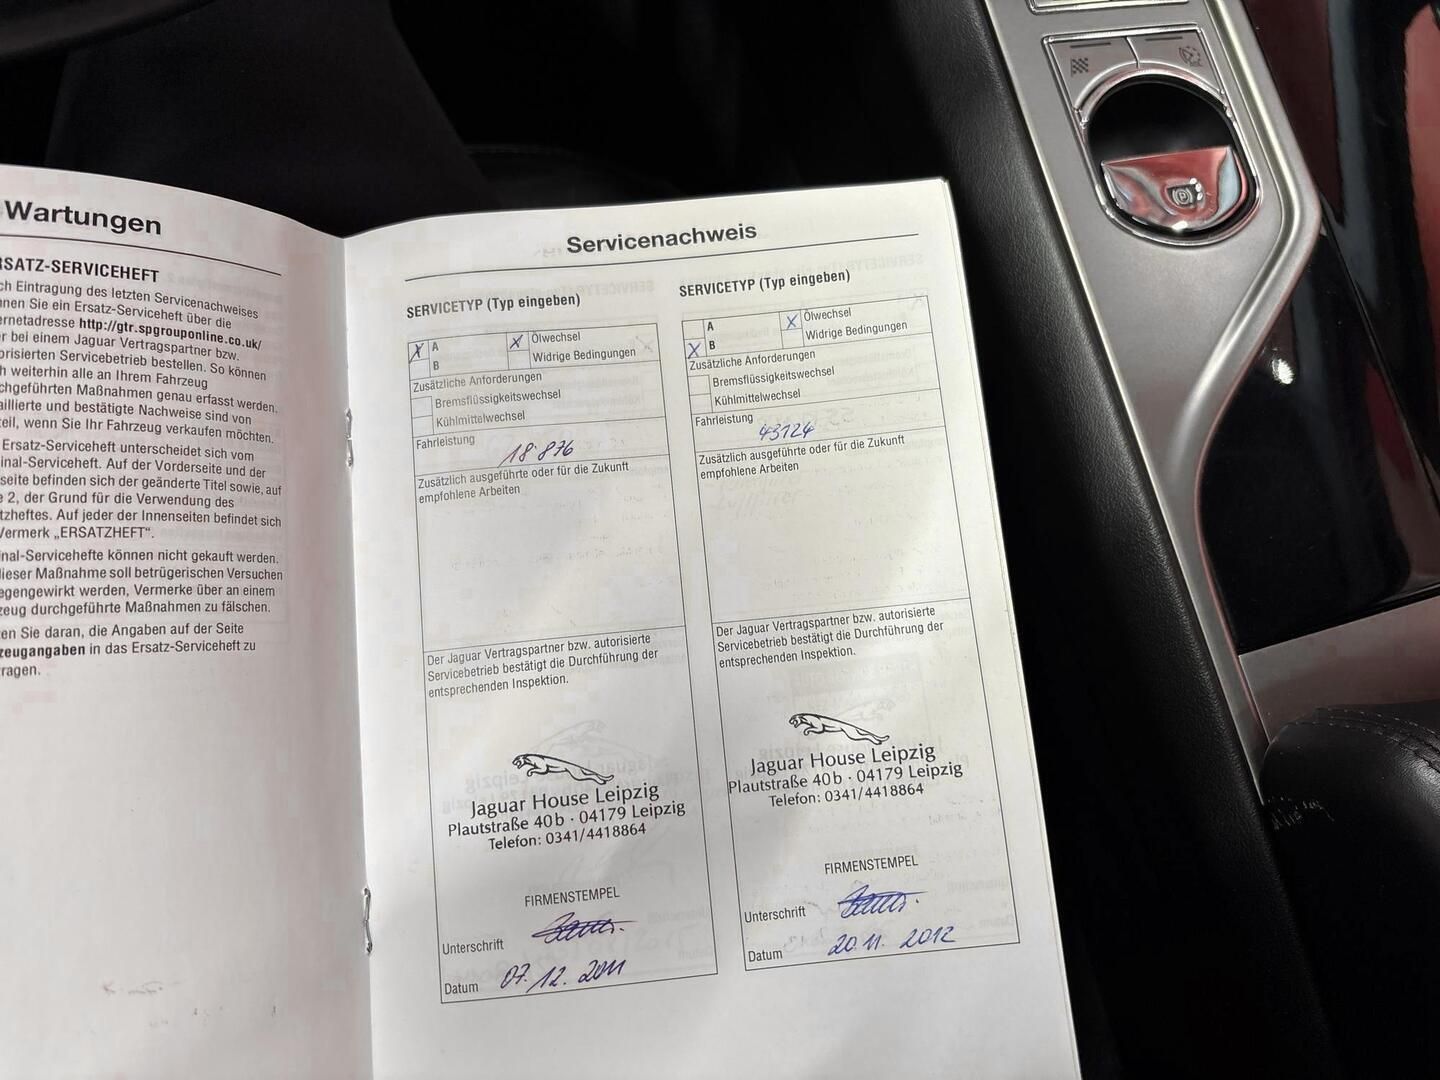 Wartungen
ERSATZ-SERVICEHEFT
ch Eintragung des letzten Servicenachweises
nnen Sie ein Ersatz-Serviceheft über die
ernetadresse http://gtr.spgrouponline.co.uk/
er bei einem Jaguar Vertragspartner bzw.
orisierten Servicebetrieb bestellen. So können
ch weiterhin alle an Ihrem Fahrzeug
chgeführten Maßnahmen genau erfasst werden.
aillierte und bestätigte Nachweise sind von
teil, wenn Sie Ihr Fahrzeug verkaufen möchten.
Ersatz-Serviceheft unterscheidet sich vom
inal-Serviceheft. Auf der Vorderseite und der
seite befinden sich der geänderte Titel sowie, auf
e 2, der Grund für die Verwendung des
tzheftes. Auf jeder der Innenseiten befindet sich
Vermerk „ERSATZHEFT“.
inal-Servicehefte können nicht gekauft werden.
dieser Maßnahme soll betrügerischen Versuchen
egengewirkt werden, Vermerke über an einem
zeug durchgeführte Maßnahmen zu fälschen.
en Sie daran, die Angaben auf der Seite
zeugangaben in das Ersatz-Serviceheft zu
ragen.
Servicenachweis
SERVICETYP (Typ eingeben)
X A
X Ölwechsel
B
Widrige Bedingungen
Zusätzliche Anforderungen
Bremsflüssigkeitswechsel
Kühlmittelwechsel
Fahrleistung
18.876
Zusätzlich ausgeführte oder für die Zukunft
empfohlene Arbeiten
Der Jaguar Vertragspartner bzw. autorisierte
Servicebetrieb bestätigt die Durchführung der
entsprechenden Inspektion.
Jaguar House Leipzig
Plautstraße 40b · 04179 Leipzig
Telefon: 0341/4418864
FIRMENSTEMPEL
Unterschrift
Datum 07.12.2011
SERVICETYP (Typ eingeben)
A
X Ölwechsel
X B
Widrige Bedingungen
Zusätzliche Anforderungen
Bremsflüssigkeitswechsel
Kühlmittelwechsel
Fahrleistung
43124
Zusätzlich ausgeführte oder für die Zukunft
empfohlene Arbeiten
Der Jaguar Vertragspartner bzw. autorisierte
Servicebetrieb bestätigt die Durchführung der
entsprechenden Inspektion.
Jaguar House Leipzig
Plautstraße 40b · 04179 Leipzig
Telefon: 0341/4418864
FIRMENSTEMPEL
Unterschrift
Datum 20.11.2012